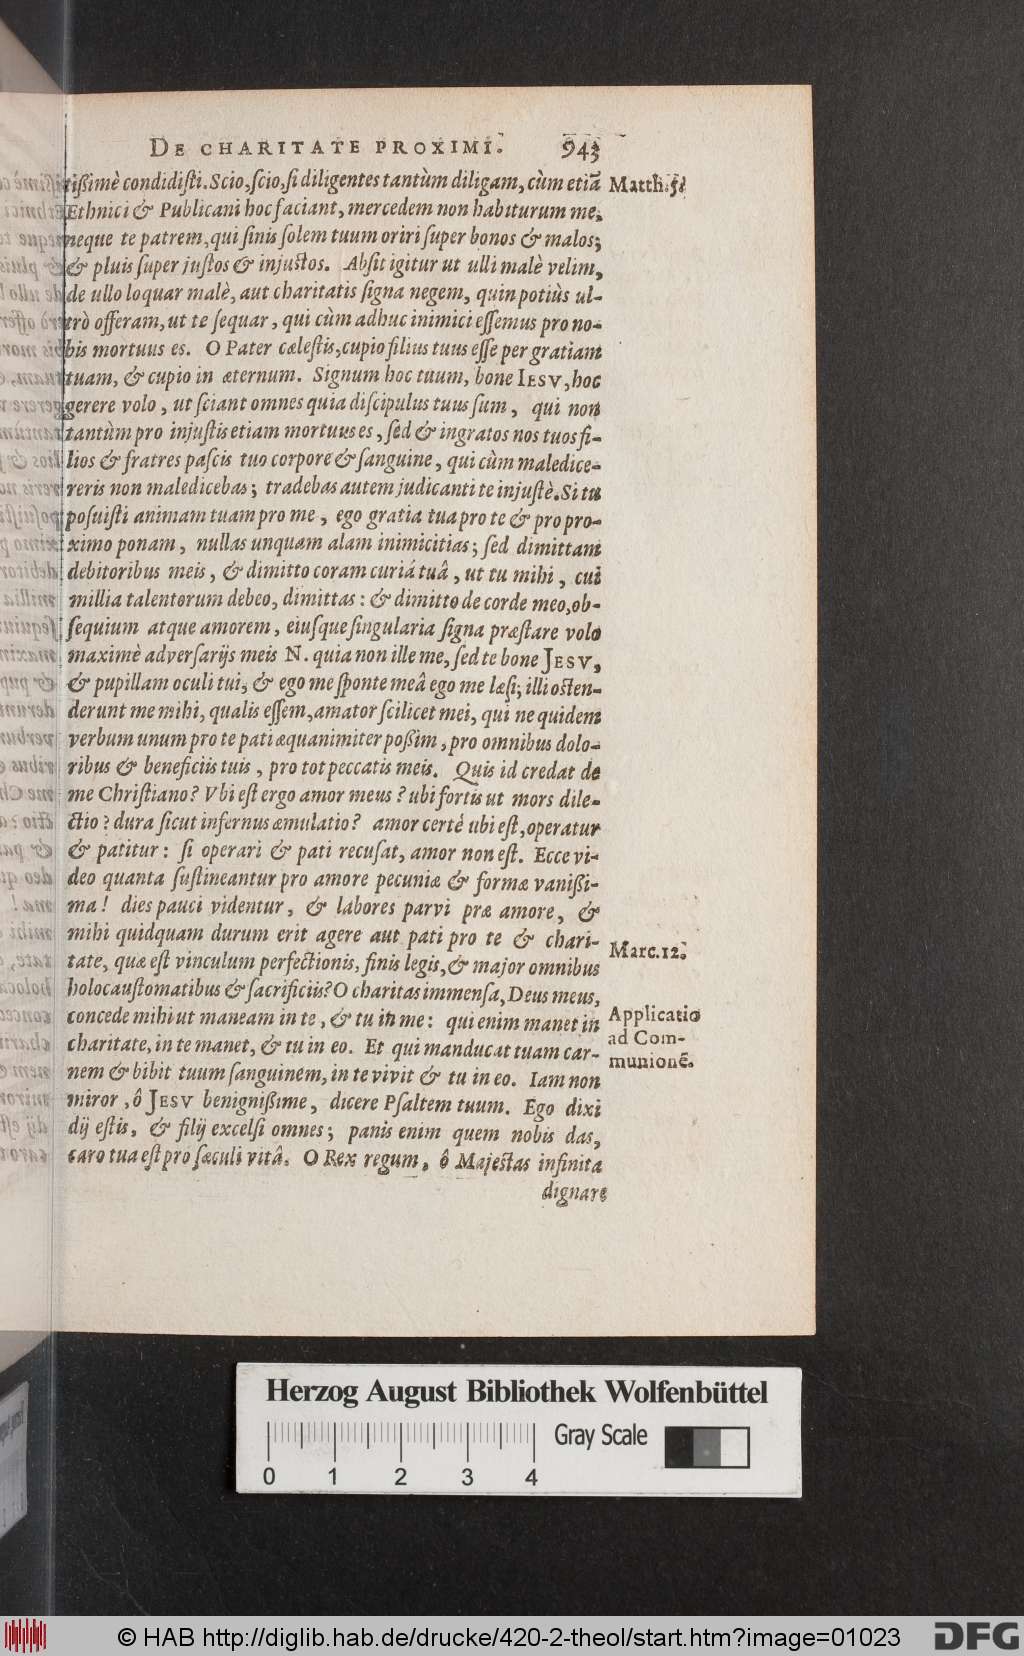 DE CHARITATE PROXIMI. 943
rißimè condidisti. Scio, scio, si diligentes tantùm diligam, cùm etiã Matth. 5.
Ethnici & Publicani hoc faciant, mercedem non habiturum me,
neque te patrem, qui sinis solem tuum oriri super bonos & malos;
& pluis super justos & injustos. Absit igitur ut ulli malè velim,
de ullo loquar malè, aut charitatis signa negem, quin potiùs ul-
trò offeram, ut te sequar, qui cùm adhuc inimici essemus pro no-
bis mortuus es. O Pater cælestis, cupio filius tuus esse per gratiam
tuam, & cupio in æternum. Signum hoc tuum, bone IESV, hoc
gerere volo, ut sciant omnes quia discipulus tuus sum, qui non
tantùm pro injustis etiam mortuus es, sed & ingratos nos tuos fi-
lios & fratres pascis tuo corpore & sanguine, qui cùm maledice-
reris non maledicebas; tradebas autem judicanti te injustè. Si tu
posuisti animam tuam pro me, ego gratia tua pro te & pro pro-
ximo ponam, nullas unquam alam inimicitias; sed dimittam
debitoribus meis, & dimitto coram curiá tuâ, ut tu mihi, cui
millia talentorum debeo, dimittas: & dimitto de corde meo, ob-
sequium atque amorem, eiusque singularia signa præstare volo
maximè adversarijs meis N. quia non ille me, sed te bone JESV,
& pupillam oculi tui, & ego me sponte meâ ego me læsi; illi osten-
derunt me mihi, qualis essem, amator scilicet mei, qui ne quidem
verbum unum pro te pati æquanimiter poßim, pro omnibus dolo-
ribus & beneficiis tuis, pro tot peccatis meis. Quis id credat de
me Christiano? Vbi est ergo amor meus? ubi fortis ut mors dile-
ctio? dura sicut infernus æmulatio? amor certé ubi est, operatur
& patitur: si operari & pati recusat, amor non est. Ecce vi-
deo quanta sustineantur pro amore pecuniæ & formæ vanißi-
ma! dies pauci videntur, & labores parvi præ amore, &
mihi quidquam durum erit agere aut pati pro te & chari-
tate, quæ est vinculum perfectionis, finis legis, & major omnibus Marc. 12.
holocaustomatibus & sacrificiis? O charitas immensa, Deus meus,
concede mihi ut maneam in te, & tu in me: qui enim manet in Applicatio
charitate, in te manet, & tu in eo. Et qui manducat tuam car- ad Com-
nem & bibit tuum sanguinem, in te vivit & tu in eo. Iam non munionẽ.
miror, ô JESV benignißime, dicere Psaltem tuum. Ego dixi
dij estis, & filij excelsi omnes; panis enim quem nobis das,
caro tua est pro sæculi vitâ. O Rex regum, ô Majestas infinita
dignare
Herzog August Bibliothek Wolfenbüttel
Gray Scale
0 1 2 3 4
© HAB http://diglib.hab.de/drucke/420-2-theol/start.htm?image=01023
DFG